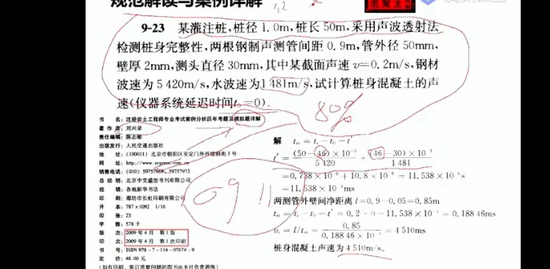 规范解读与案例详解
9-23 某灌注桩,桩径1.0m,桩长50m,采用声波透射法
检测桩身完整性,两根钢制声测管间距0.9m,管外径50mm,
壁厚2mm,测头直径30mm,其中某截面声速 v=0.2m/s,钢材
波速为5 420m/s,水波速为1 481m/s,试计算桩身混凝土的声
速(仪器系统延迟时间t₀=0)。
80%
书 名:注册岩土工程师专业考试案例分析历年考题及模拟题详解
著 作 者:刘兴录
责任编辑:陈志敏
出版发行:人民交通出版社
地 址:(100011) 北京市朝阳区安定门外外馆斜街3号
网 址:http://www.ccpress.com.cn
经 销:北京中交盛世书刊有限公司
经 销:各地新华书店
印 刷:廊坊市长虹印刷有限公司
开 本:787×1092 1/16
印 张:23
字 数:578千
版 次:2009年4月 第1版
印 次:2009年4月 第1次印刷
书 号:ISBN 978-7-114-07674-9
定 价:48.00元
0911
解
t′=(50-46)×10⁻³/5 420+(46-30)×10⁻³/1 481
=0.738×10⁻⁶+10.8×10⁻⁶=11.538×10⁻⁶s
=11.538×10⁻³ms
两测管外壁间净距离 l=0.9-0.05=0.85m
桩身混凝土声速为4 510m/s。